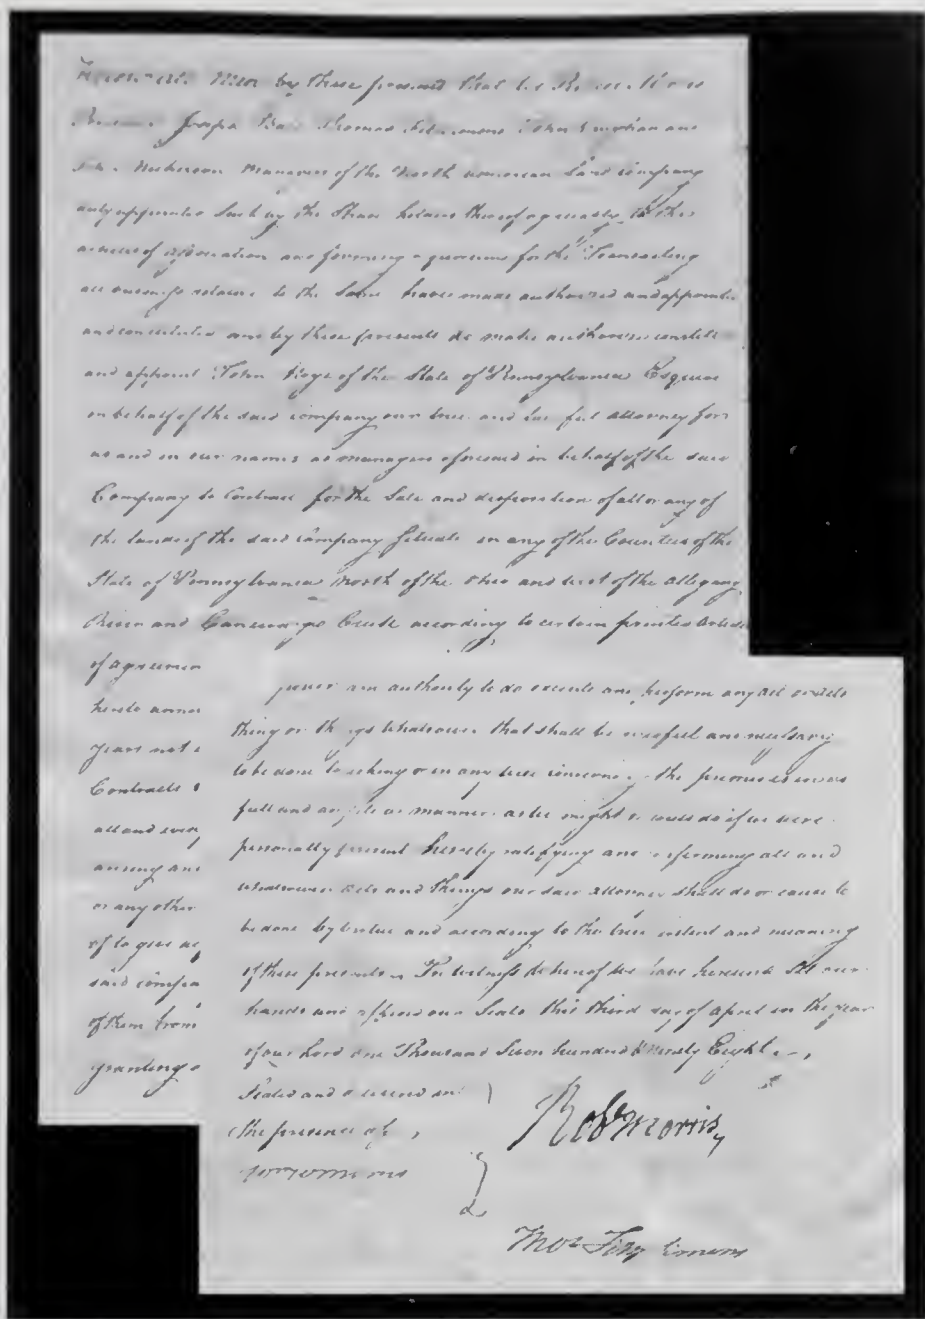 Know all Men by these presents that we Robert Morris
Joseph Thomas Fitzsimons John and
Nicholson Managers of the North American Land Company
duly appointed Such by the Share holders thereof agreeably to the
articles of association and forming a quorum for the Transacting
all business relative to the Same have made authorized and appointed
and constituted and by these presents do make authorise constitute
and appoint John Hoge of the State of Pennsylvania Esquire
on behalf of the said company our true and lawful attorney for
us and in our names as managers aforesaid in behalf of the said
Company to Contract for the Sale and disposition of all or any of
the lands of the said Company Situate in any of the Counties of the
State of Pennsylvania North of the Ohio and west of the Allegany
River and Conewango Creek according to certain printed Articles
of agreemen
hereto annex
years not
Contracts
all and every
arising and
or any other
of to give
said compa
of them from
granting
power and authority to do execute and perform any act or acts
thing or things whatsoever that shall be needful and necessary
to be done touching or in any wise concerning the premises in as
full and ample a manner as we might or could do if we were
personally present hereby ratifying and confirming all and
whatsoever acts and things our said attorney shall do or cause to
be done by virtue and according to the true intent and meaning
of these presents In witness whereof we have hereunto Set our
hands and affixed our Seals this third day of April in the year
of our Lord one Thousand Seven hundred & Ninety Eight
Sealed and delivered in
the presence of
Robt Morris
Thos Fitzsimons